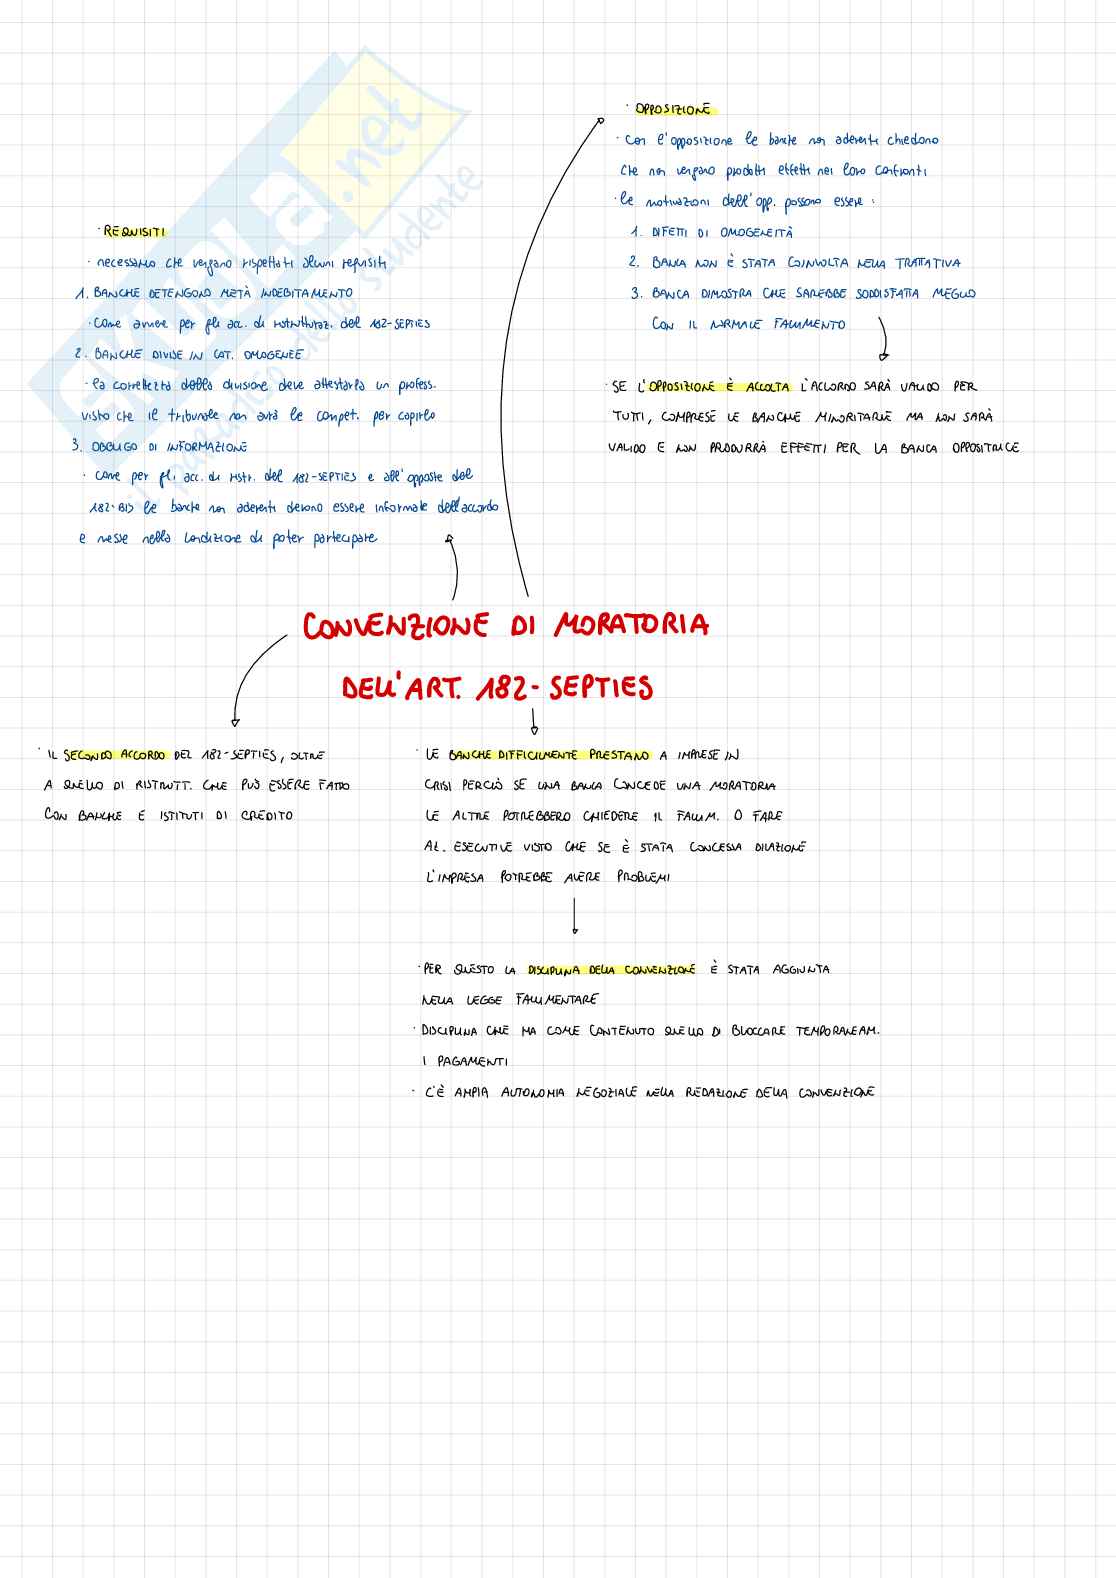 · OPPOSIZIONE
· con l'opposizione le banche non aderenti chiedono
che non vengano prodotti effetti nei loro confronti
· le motivazioni dell'opp. possono essere :
1. DIFETTI DI OMOGENEITÀ
2. BANCA NON È STATA COINVOLTA NELLA TRATTATIVA
3. BANCA DIMOSTRA CHE SAREBBE SODDISFATTA MEGLIO
CON IL NORMALE FALLIMENTO
· SE L'OPPOSIZIONE È ACCOLTA L'ACCORDO SARÀ VALIDO PER
TUTTI, COMPRESE LE BANCHE MINORITARIE MA NON SARÀ
VALIDO E NON PRODURRÀ EFFETTI PER LA BANCA OPPOSITRICE
· REQUISITI
· necessario che vengano rispettati alcuni requisiti
1. BANCHE DETENGONO METÀ INDEBITAMENTO
· come avviene per gli acc. di ristrutturaz. del 182-SEPTIES
2. BANCHE DIVISE IN CAT. OMOGENEE
· la correttezza della divisione deve attestarla un profess.
visto che il tribunale non avrà le compet. per capirlo
3. OBBLIGO DI INFORMAZIONE
· come per gli acc. di ristr. del 182-SEPTIES e all'opposte del
182-BIS le banche non aderenti devono essere informate dell'accordo
e messe nella condizione di poter partecipare
CONVENZIONE DI MORATORIA
DELL'ART. 182-SEPTIES
· IL SECONDO ACCORDO DEL 182-SEPTIES, OLTRE
A QUELLO DI RISTRUTT. CHE PUÒ ESSERE FATTO
CON BANCHE E ISTITUTI DI CREDITO
· LE BANCHE DIFFICILMENTE PRESTANO A IMPRESE IN
CRISI PERCIÒ SE UNA BANCA CONCEDE UNA MORATORIA
LE ALTRE POTREBBERO CHIEDERE IL FALLIM. O FARE
AZ. ESECUTIVE VISTO CHE SE È STATA CONCESSA DILAZIONE
L'IMPRESA POTREBBE AVERE PROBLEMI
· PER QUESTO LA DISCIPLINA DELLA CONVENZIONE È STATA AGGIUNTA
NELLA LEGGE FALLIMENTARE
· DISCIPLINA CHE HA COME CONTENUTO QUELLO DI BLOCCARE TEMPORANEAM.
I PAGAMENTI
· C'È AMPIA AUTONOMIA NEGOZIALE NELLA REDAZIONE DELLA CONVENZIONE
SKUOLA.net
il paradiso dello studente